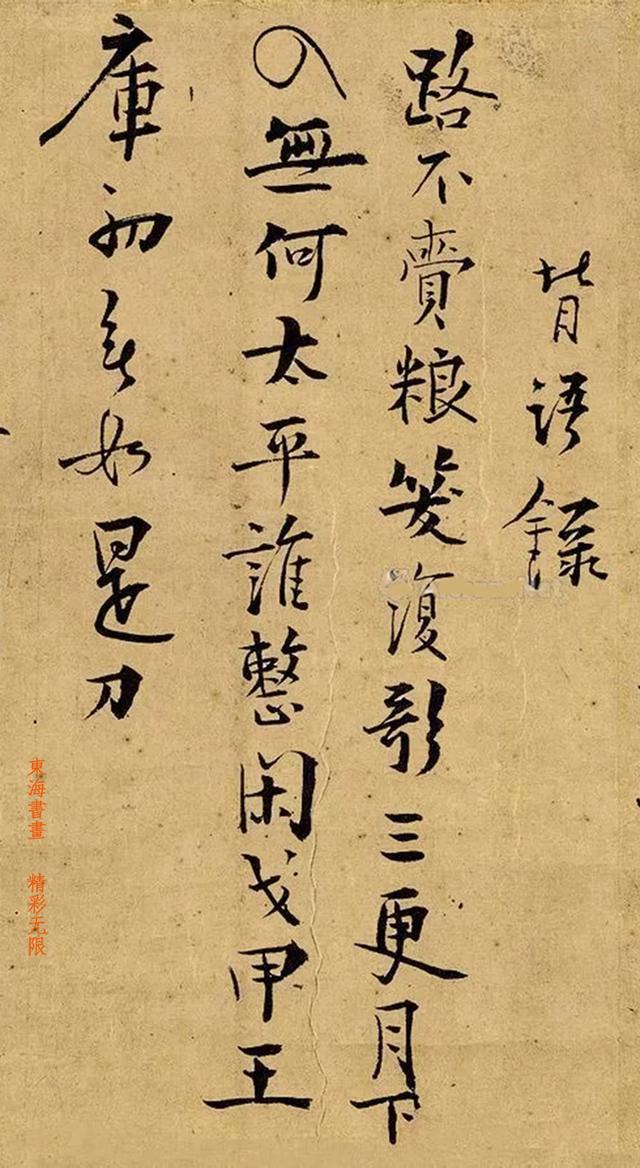 背語錄
路不賷粮笑復歌三更月下
入無何太平誰整閑戈甲王
庫初無如是刀
東海書畫 精彩无限